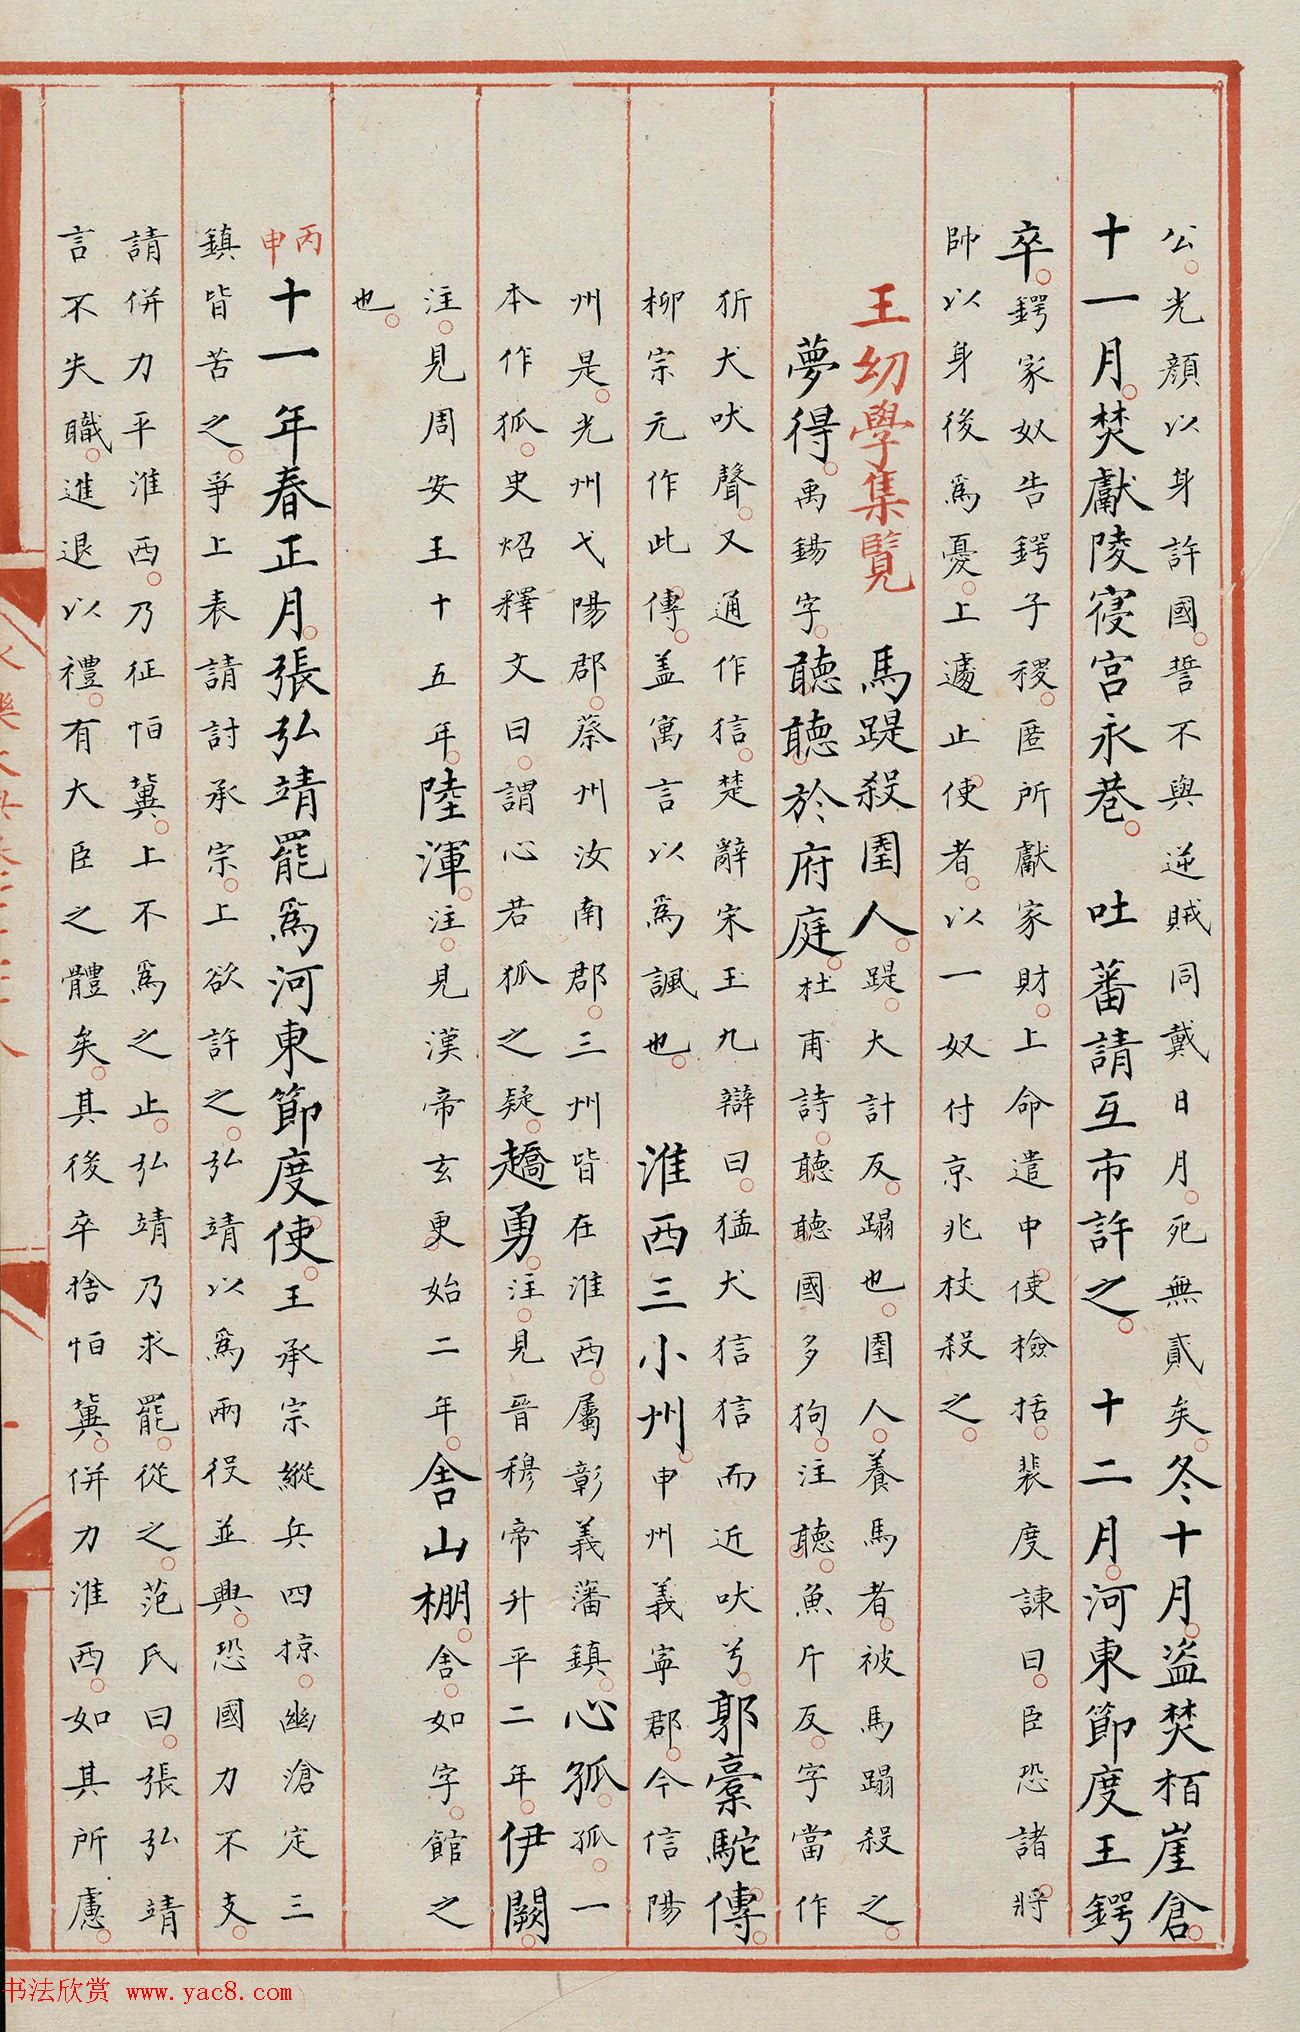 公光顔以身許國誓不與逆賊同戴日月死無貳矣冬十月盗焚栢崖倉
十一月焚獻陵寑宫永巷 吐蕃請互市許之 十二月河東節度王鍔
卒鍔家奴告鍔子稷匿所獻家財上命遣中使檢括裴度諫曰臣恐諸將
帥以身後爲憂上遽止使者以一奴付京兆杖殺之
王幼學集覽 馬踶殺圉人踶大計反蹋也圉人養馬者被馬蹋殺之
夢得禹錫字𤟵𤟵於府庭杜甫詩𤟵𤟵國多狗注𤟵魚斤反字當作
狾犬吠聲又通作信楚辭宋玉九辯曰猛犬信信而近吠兮郭橐駝傳
柳宗元作此傳盖寓言以爲諷也 淮西三小州申州義寧郡今信陽
州是光州弋陽郡蔡州汝南郡三州皆在淮西屬彰義藩鎮心孤孤一
本作狐史炤釋文曰謂心若狐之疑趫勇注見晉穆帝升平二年伊闕
注見周安王十五年陸渾注見漢帝玄更始二年舍山棚舍如字館之
也
丙申十一年春正月張弘靖罷爲河東節度使王承宗縱兵四掠幽滄定三
鎮皆苦之爭上表請討承宗上欲許之弘靖以爲兩役並興恐國力不支
請併力平淮西乃征怕冀上不爲之止弘靖乃求罷從之范氏曰張弘靖
言不失職進退以禮有大臣之體矣其後卒捨怕冀併力淮西如其所慮
书法欣赏 www.yac8.com